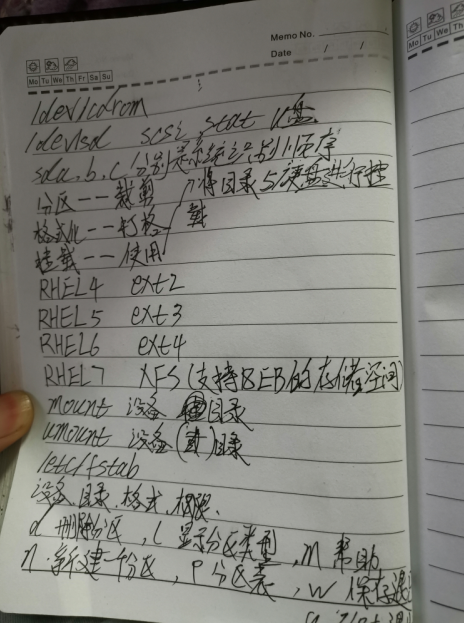 Memo No.
Date / /
Mo Tu We Th Fr Sa Su
Mo Tu We Th
/dev/cdrom
/dev/sd scsi, stat U盘
sda.b.c 分别表示系统识别顺序
分区--裁剪 将目录与硬盘进行挂
格式化--打格 载
挂载--使用
RHEL4 ext2
RHEL5 ext3
RHEL6 ext4
RHEL7 XFS (支持18EB的存储空间)
mount 设备 目录
umount 设备 ( )目录
/etc/fstab
设备.目录.格式.权限.
d 删除分区, l 显示分区类型, m 帮助
n 新建一个分区, p 分区表, w 保存退